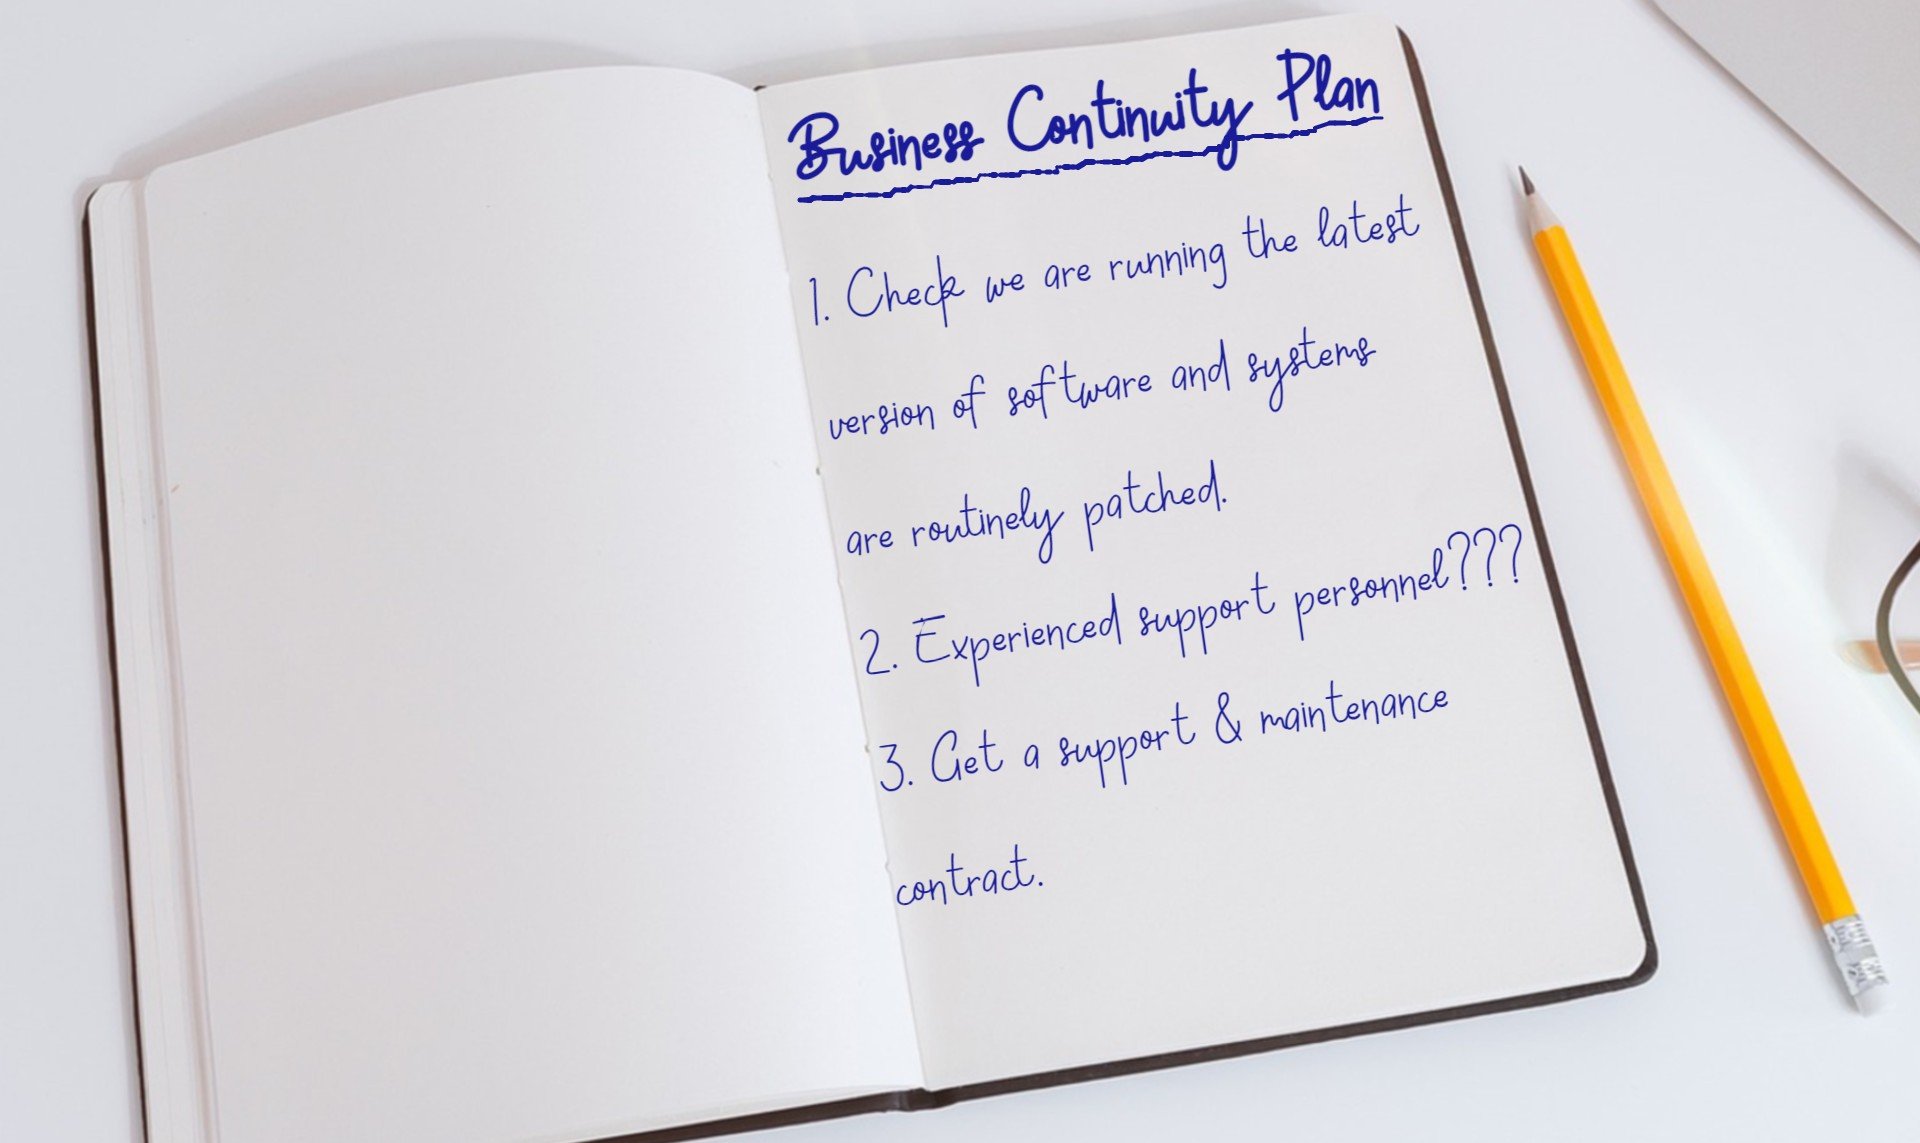 Business Continuity Plan
1. Check we are running the latest
version of software and systems
are routinely patched.
2. Experienced support personnel???
3. Get a support & maintenance
contract.